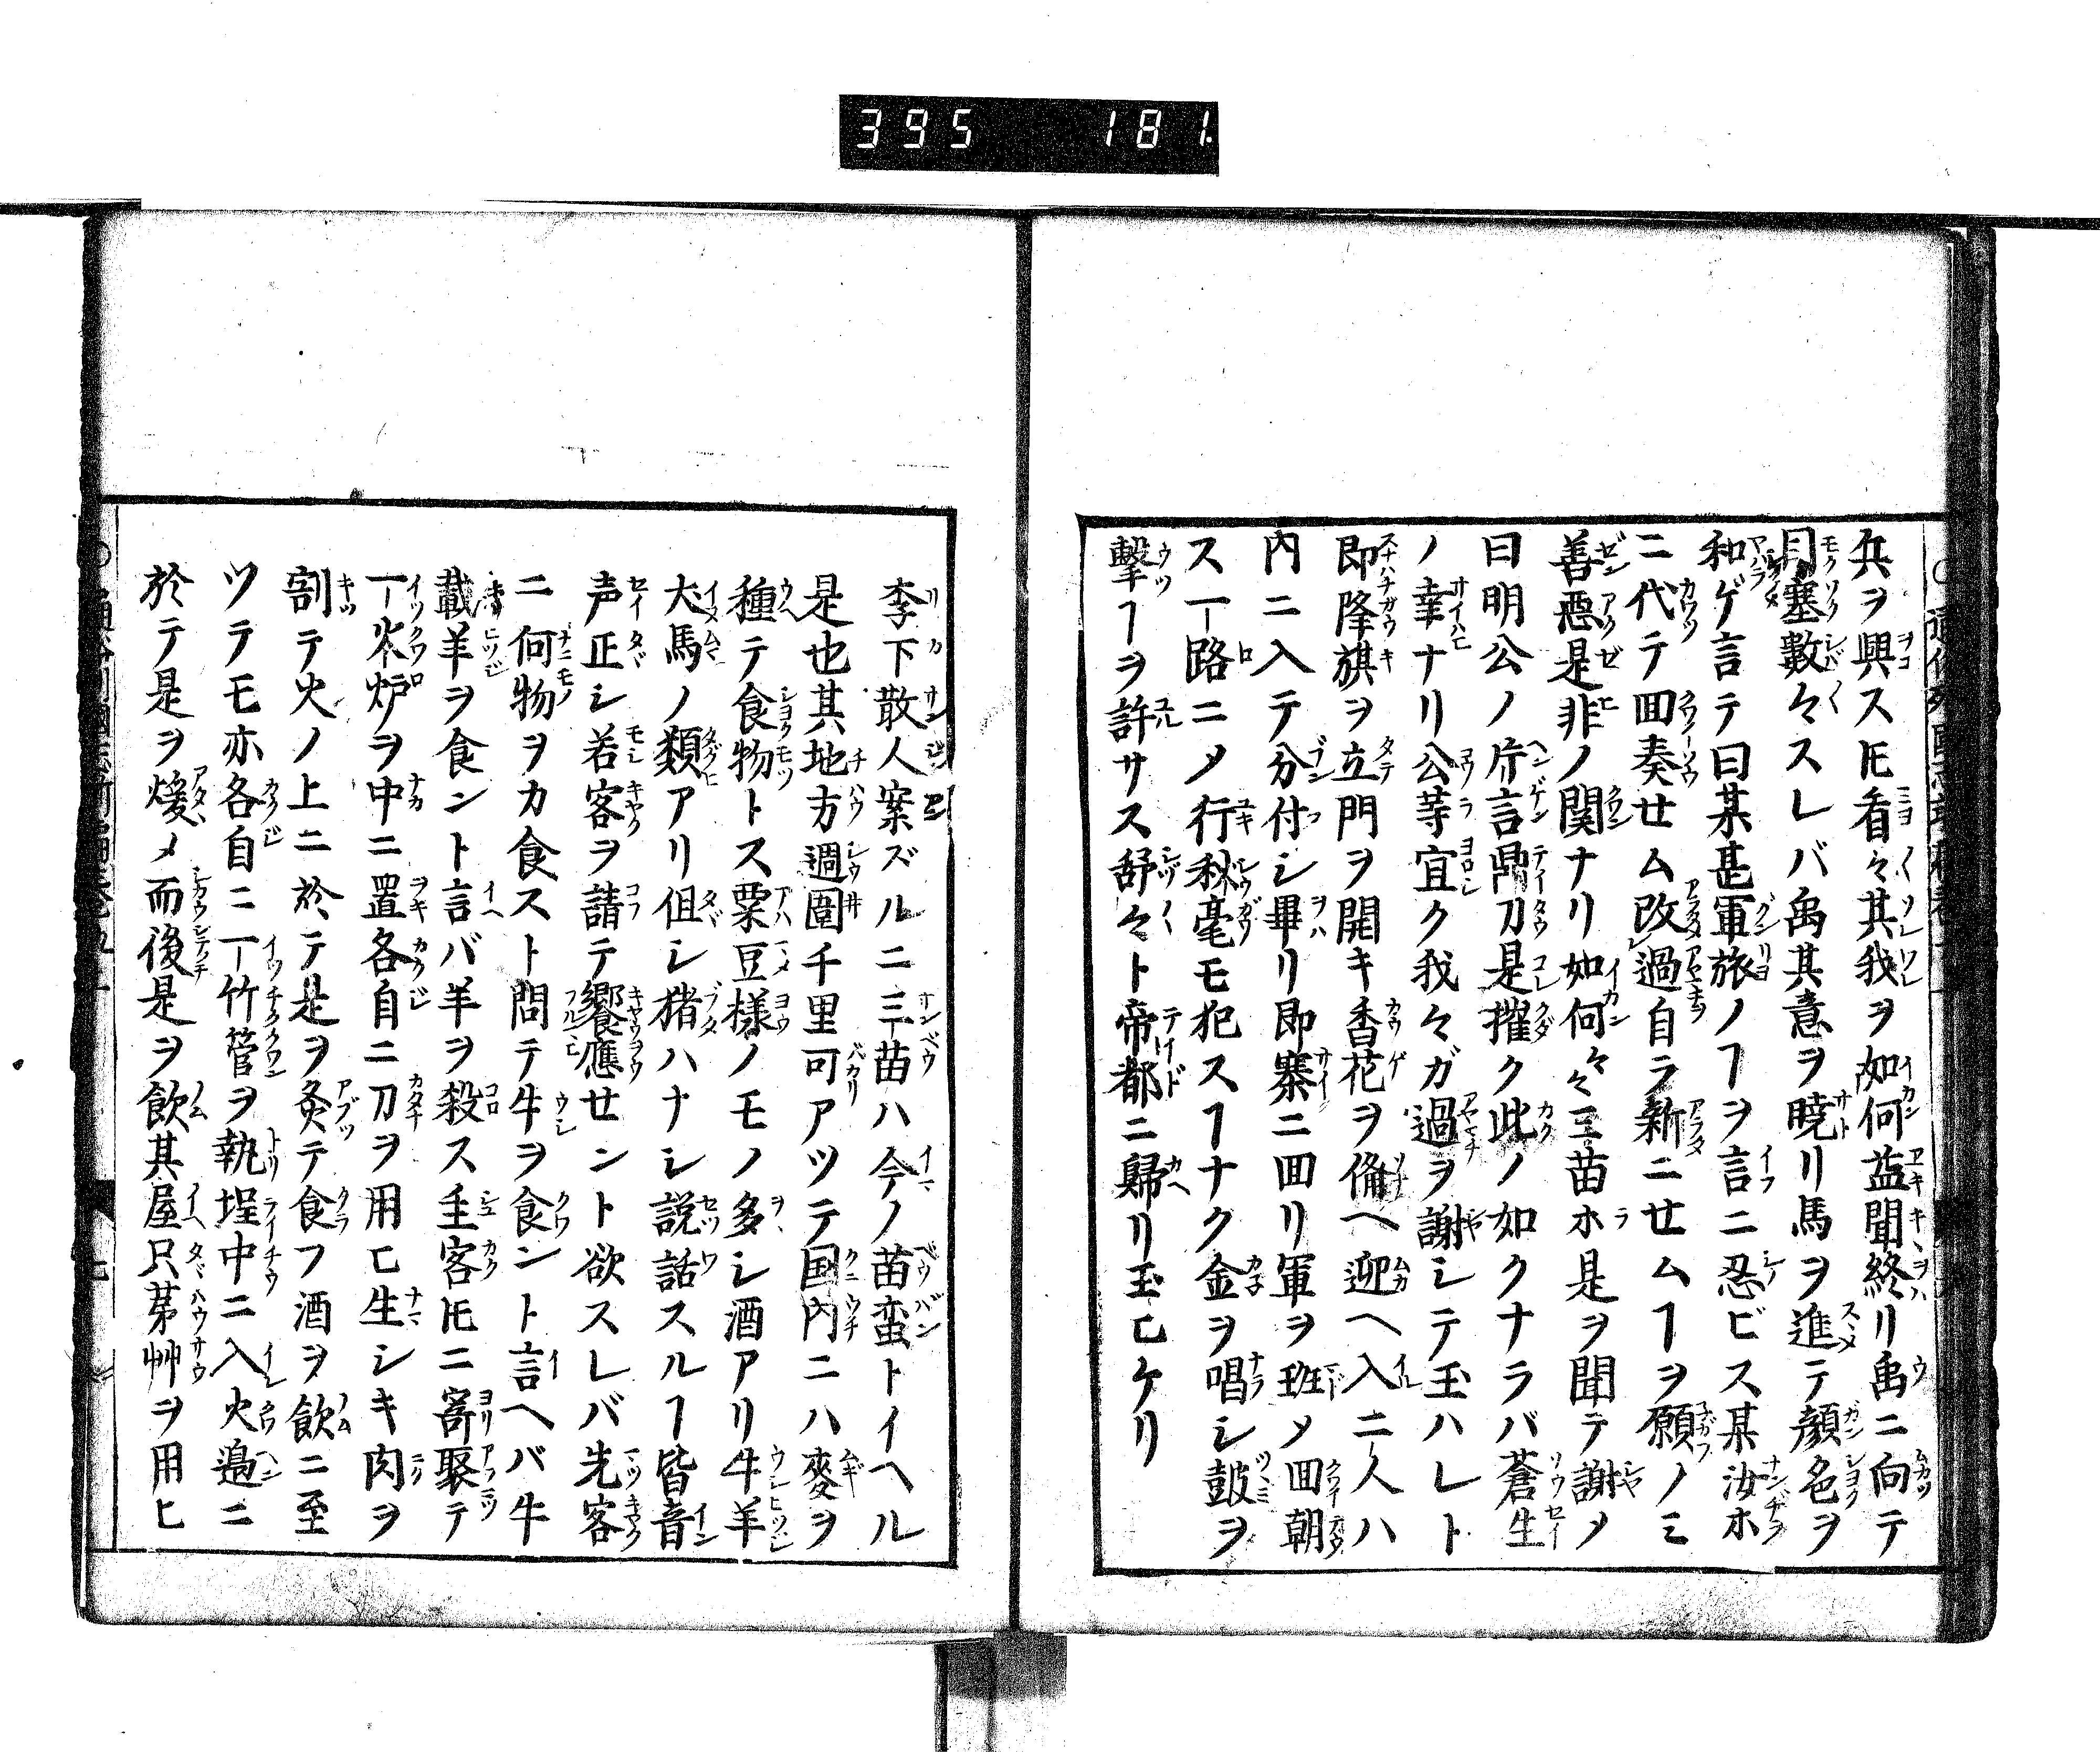 395 181
兵ヲ興スヒ看々其我ヲ如何益聞終リ禹ニ向テ
目塞數々スレバ禹其意ヲ暁リ馬ヲ進テ顔色ヲ
和ゲ言テ曰某甚軍旅ノヿヲ言ニ忍ビス某汝ホ
ニ代テ回奏せム改過自ラ新ニせムヿヲ願ノミ
善惡是非ノ関ナリ如何々々三苗ホ是ヲ聞テ謝メ
曰明公ノ片言鼎刀是摧ク此ノ如クナラバ蒼生
ノ幸ナリ公等宜ク我々ガ過ヲ謝シテ玉ハレト
即降旗ヲ立門ヲ開キ香花ヲ僃ヘ迎ヘ入二人ハ
内ニ入テ分付シ畢リ即寨ニ回リ軍ヲ班メ回朝
ス一路ニメ行秋毫モ犯スヿナク金ヲ唱シ皷ヲ
擊ヿヲ許サス舒々ト帝都ニ歸リ玉ヒケリ
李下散人案ズルニ三苗ハ今ノ苗蛮トイヘル
是也其地方週圍千里可アツテ国內ニハ麥ヲ
種テ食物トス粟豆様ノモノ多シ酒アリ牛羊
犬馬ノ類アリ伹シ猪ハナシ説話スルヿ皆音
声正シ若客ヲ請テ饗應せント欲スレバ先客
ニ何物ヲカ食スト問テ牛ヲ食ント言ヘバ牛
載羊ヲ食ント言バ羊ヲ殺ス主客ヒニ寄聚テ
一火炉ヲ中ニ置各自ニ刀ヲ用ヒ生シキ肉ヲ
割テ火ノ上ニ於テ是ヲ炙テ食フ酒ヲ飲ニ至
ツテモ亦各自ニ一竹管ヲ執埕中ニ入火邉ニ
於テ是ヲ煖メ而後是ヲ飲其屋只茅艸ヲ用ヒ